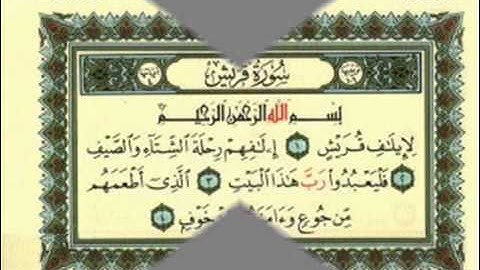 سُورَةُ قُرَيْشٍ
بِسْمِ اللَّهِ الرَّحْمَٰنِ الرَّحِيمِ
لِإِيلَافِ قُرَيْشٍ ١ إِۦلَافِهِمْ رِحْلَةَ الشِّتَاءِ وَالصَّيْفِ
٢ فَلْيَعْبُدُوا رَبَّ هَٰذَا الْبَيْتِ ٣ الَّذِي أَطْعَمَهُم
مِّن جُوعٍ وَءَامَنَ خَوْفٍ ٤